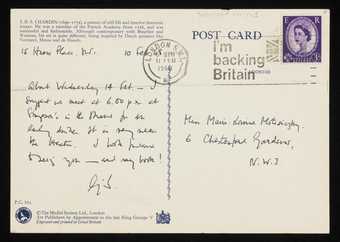 J. B. S. CHARDIN (1699-1779), a painter of still life and interior domestic
scenes. He was a member of the French Academy from 1728, and was
successful and fashionable. Although contemporary with Boucher and
Watteau, his art is quite different, being inspired by Dutch painters like
Vermeer, Metsu and de Hooch.
10 Feb. 68
About Wednesday 14 Feb – I
suggest we meet at 6.00 p.m. at
in the for an
early drink. It is very near
the theatre. I both promise
to bring you – and my book!
P.C.
© The Medici Society Ltd., London
Art Publishers by Appointment to the late King George V
Engraved and printed in Great Britain
POST CARD
LONDON S.W.1
1968
I'm
backing
Britain
E R
Miss Marie-Louise Motesiczky,
6 Chesterford Gardens,
N.W.3